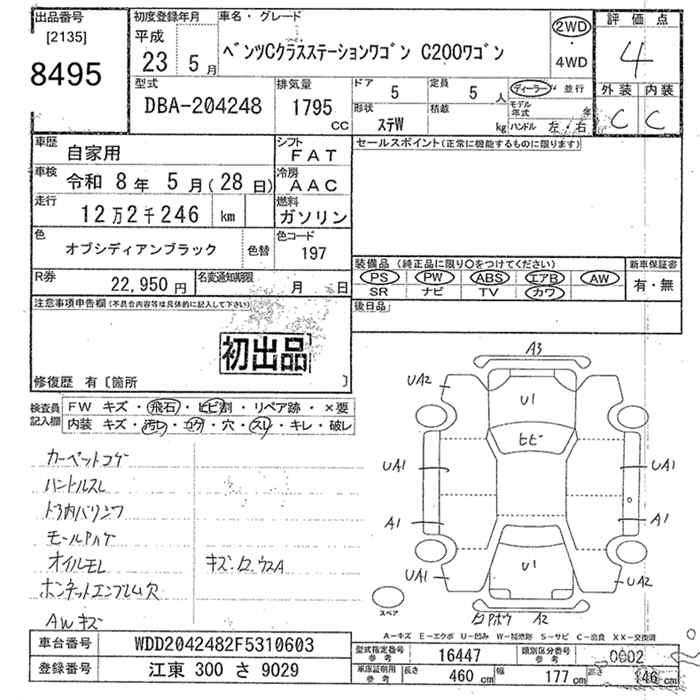 出品番号
[2135]
8495
初度登録年月
平成
23 5月
車名・グレード
ベンツCクラスステーションワゴン C200ワゴン
2WD
・
4WD
評価点
4
外装 内装
C C
型式
DBA-204248
排気量
1795
CC
ドア 5
定員 5人
形状
ステW
積載
kg
ディーラー 並行
モデル年式 年
ハンドル 左・右
車歴
自家用
シフト
FAT
車検
令和 8年 5月(28日)
冷房
AAC
走行
12万2千246 km
燃料
ガソリン
色
オブシディアンブラック
色替
色コード
197
R券
22,950円
名変通知期限
月 日
セールスポイント(正常に機能するものに限ります)
装備品 (純正品に限り○をつけてください)
PS PW ABS エアB AW
SR ナビ TV カワ
新車保証書
有・無
後日品
注意事項申告欄(不具合内容等は具体的に記入して下さい)
初出品
修復歴 有〔箇所 〕
検査員記入欄
FW キズ・飛石・ヒビ割・リペア跡・×要
内装 キズ・汚レ・コゲ・穴・スレ・キレ・破レ
カーペットコゲ
ハンドルスレ
ドア内バリシワ
モールハゲ
オイルモレ
キズ・凹・ウスA
ボンネットエンブレム欠
AWキズ
A3
UA2
U1
ヒビ
UA1
UA1
A1
A1
U1
UA1
UA2
A2
スペア
A-キズ E-エクボ U-凹み W-補修跡 S-サビ C-腐食 XX-交換済
車台番号
WDD2042482F5310603
登録番号
江東 300 さ 9029
型式指定番号
参考
16447
類別区分番号
参考
0002
車庫証明用
参考
長さ 460cm
幅 177cm
高さ 146cm